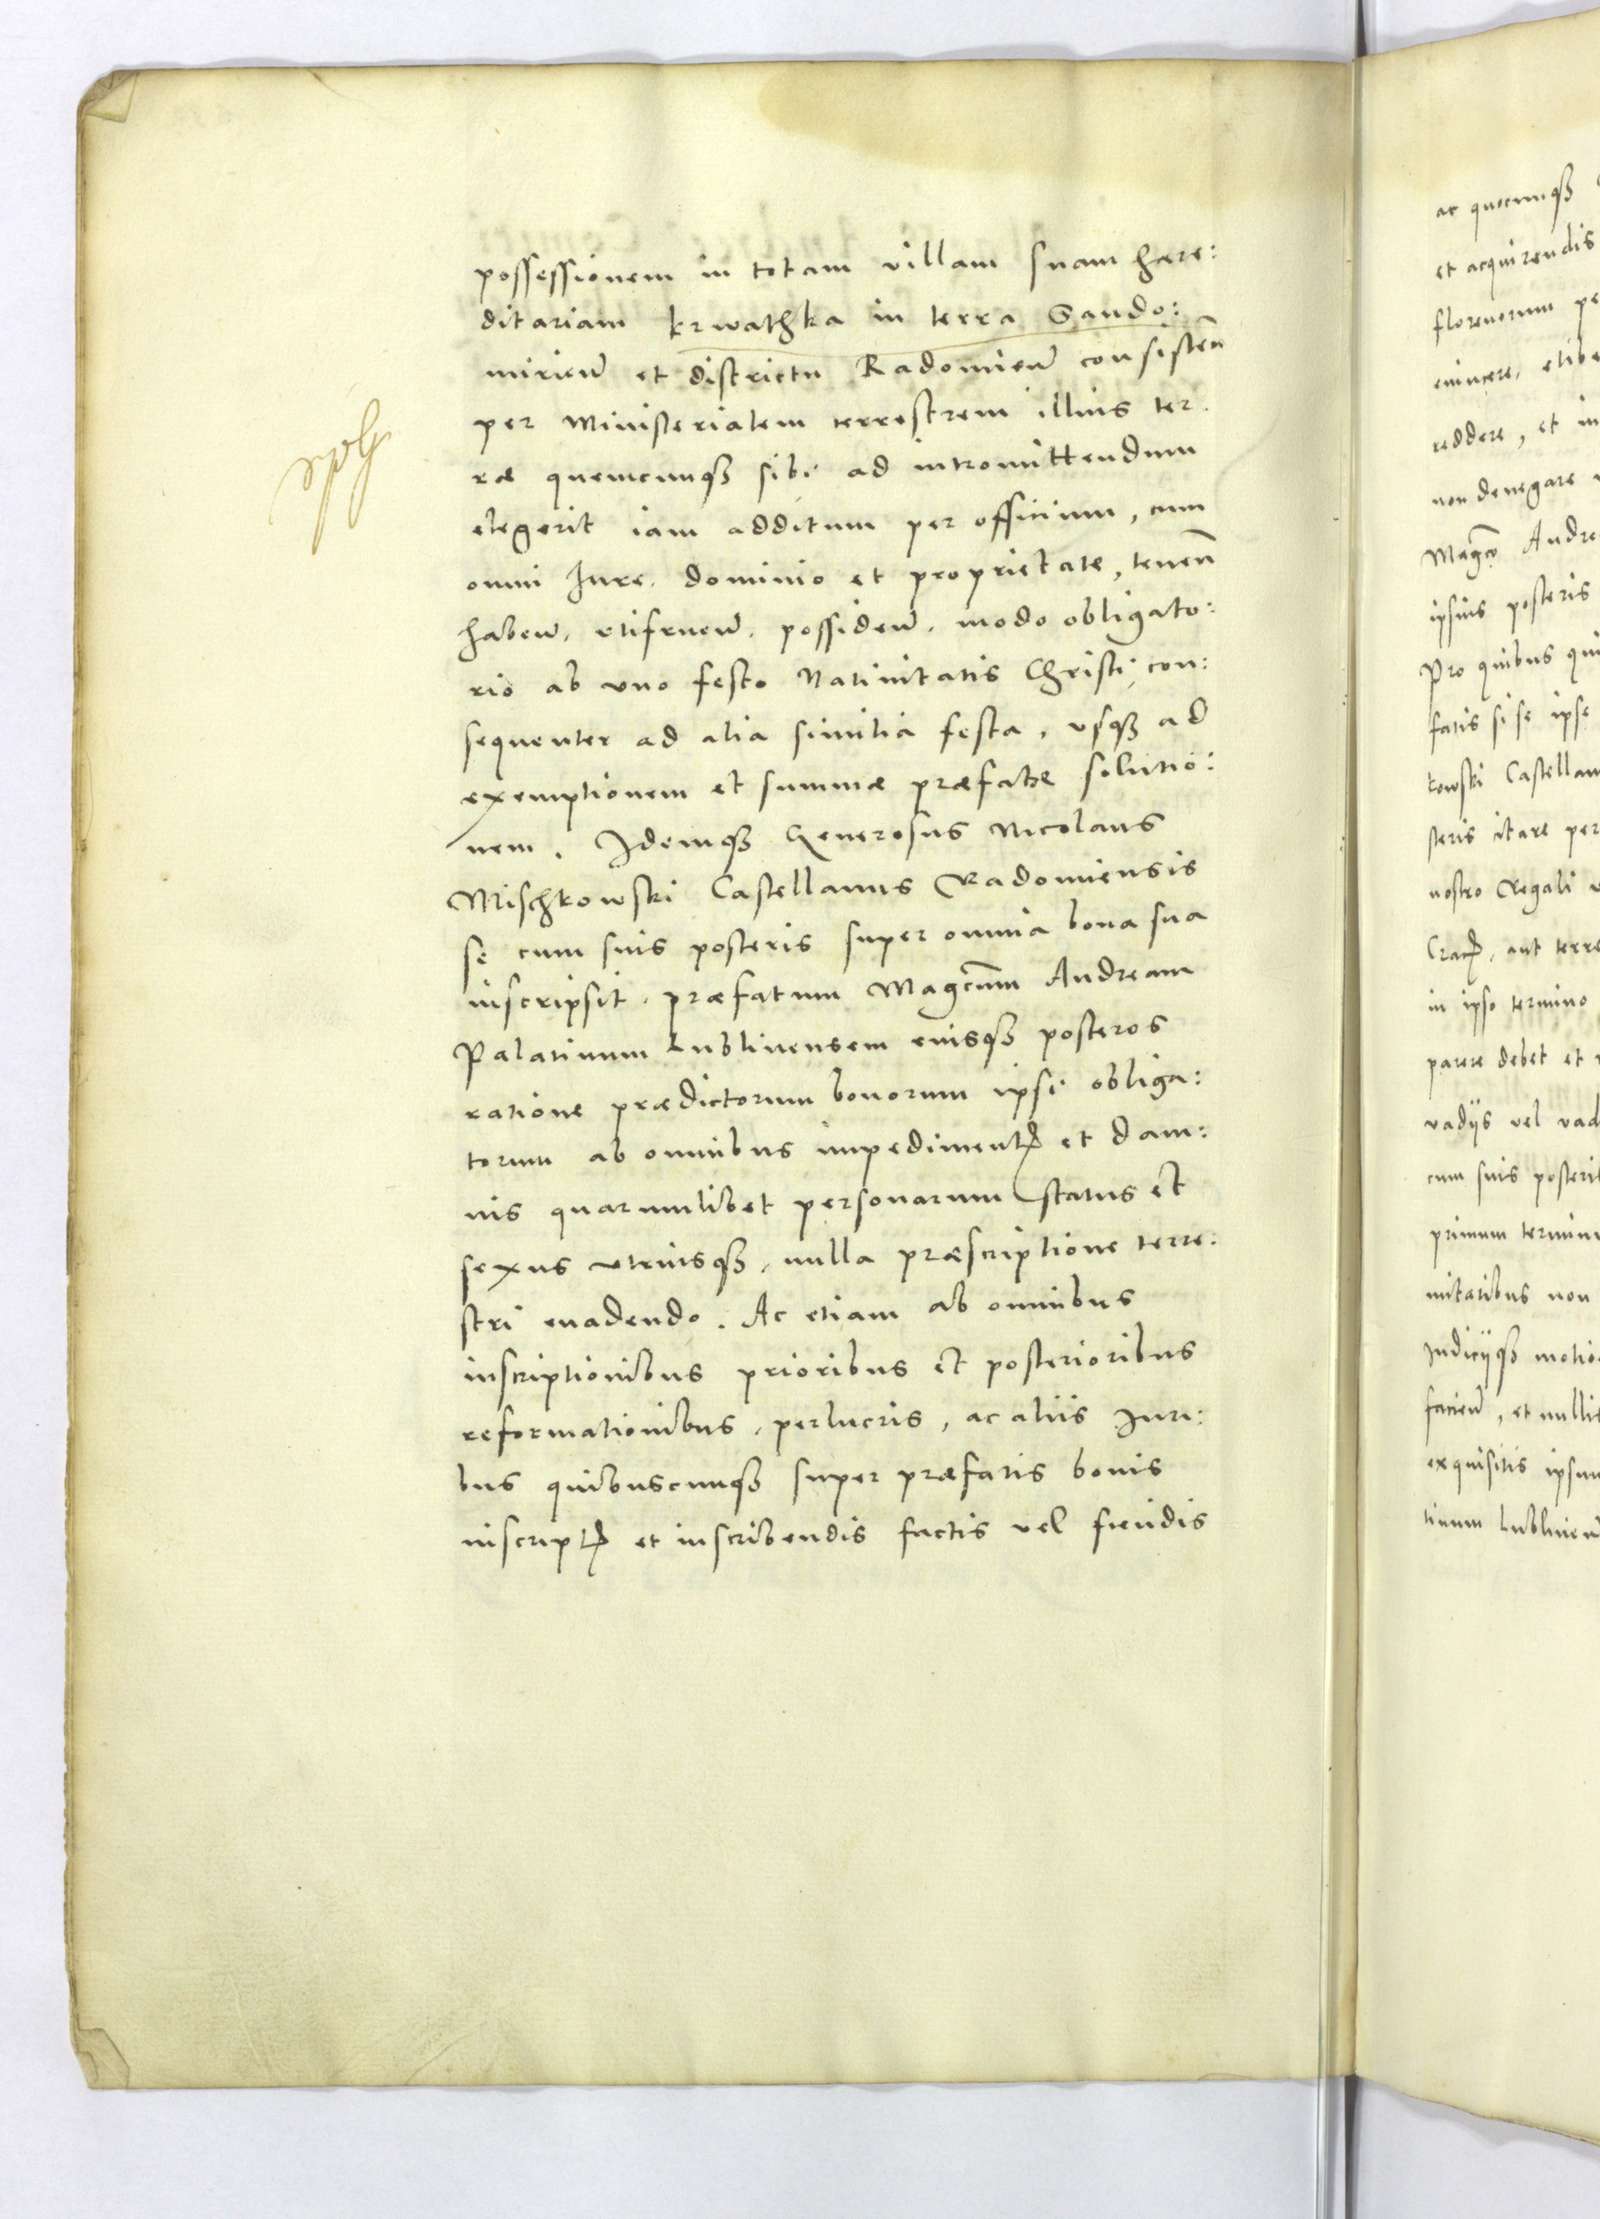 possessionem in totam villam suam hære:
ditariam Krwathka in terra Sando:
mirien̄ et districtu Radomien̄ consisten̄
per Ministerialem terrestrem illius ter.
ræ quemcunqȝ sibi ad intromittendum
elegerit iam additum per officium, cum
omni Iure. dominio et proprietate, tenen̄
haben̄. utifruen̄. possiden̄. modo obligato:
rio ab uno festo Nativitatis Christi, con:
sequenter ad alia similia festa, usqȝ ad
exemptionem et summæ præfatæ solutio:
nem. Idemqȝ Generosus Nicolaus
Mischkowski Castellanus Radomiensis
se cum suis posteris super omnia bona sua
inscripsit. præfatum Magcum̄ Andream
Palatinum Lublinensem eiusqȝ posteros
ratione prædictorum bonorum ipsi obliga:
torum ab omnibus impedimentꝭ et dam:
nis quarumlibet personarum status et
sexus utriusqȝ, nulla præscriptione terre:
stri evadendo. Ac etiam ab omnibus
inscriptionibus prioribus et posterioribus
reformationibus, perlucris, ac aliis Iuri:
bus quibuscunqȝ super præfatis bonis
inscriptꝭ et inscribendis factis vel fiendis
ac quecunqȝ
et acquirendis
florenorum
reddere, et
non denegare
Magco Andre
ipsius posteris
Pro quibus
fatis si se ipse
kowski Castellan
steris citare per
nostro Regali
Cracꝭ. aut terre
in ipso termino
parere debet et
vadiis vel vad
cum suis posteri
primum termin
mitatibus non
Iudiciiqȝ motio
facien̄, et nullis
exquisitis ipsum
tinum Lublinen̄